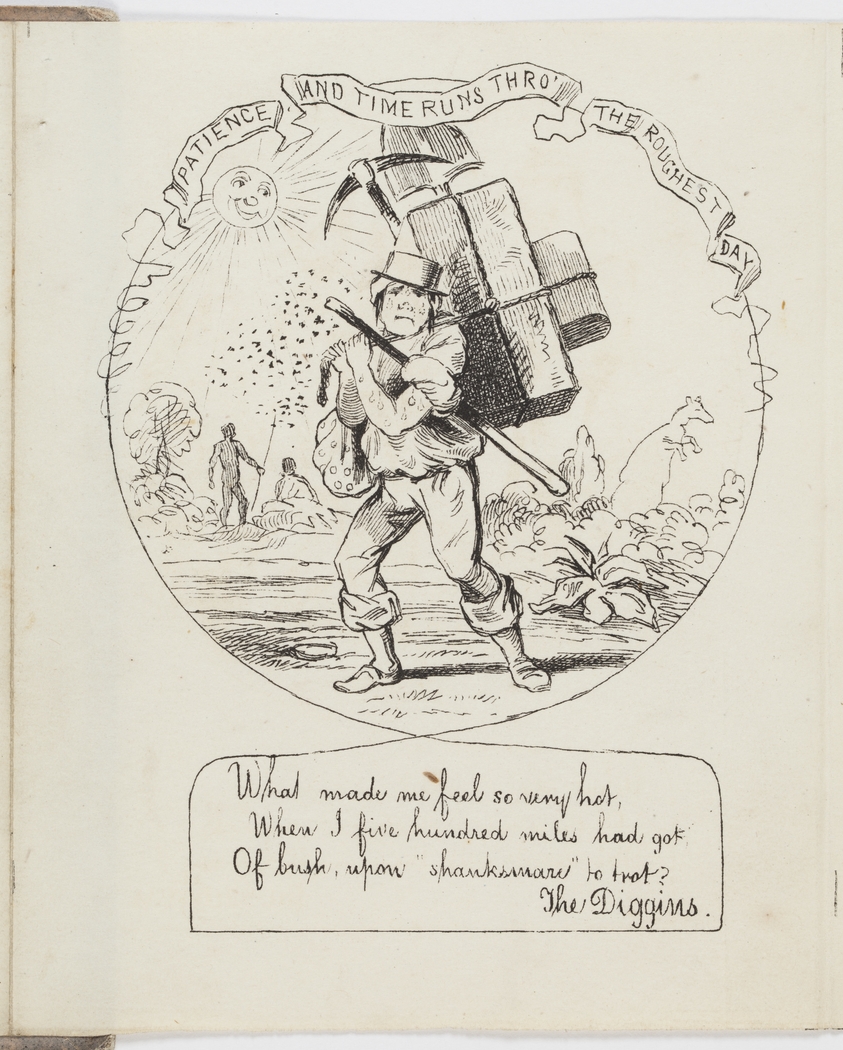 PATIENCE AND TIME RUNS THRO' THE ROUGHEST DAY
What made me feel so very hot,
When I five hundred miles had got
Of bush, upon "shanksmare" to trot?
The Diggins.